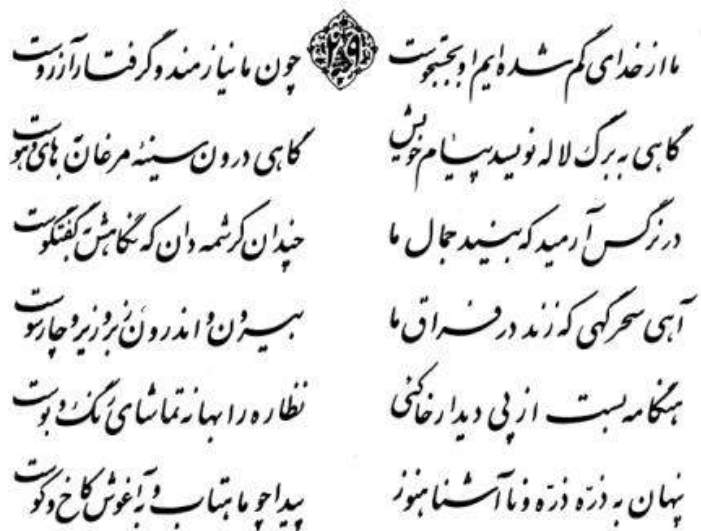 ما از خدای گم شده‌ایم او بجستجوست ۲۹ چون ما نیازمند و گرفتار آرزوست
گاهی به برگ لاله نویسد پیام خویش گاهی درون سینهٔ مرغان به های و هوست
در نرگس آرمید که بیند جمال ما چندان کرشمه دان که نگاهش به گفتگوست
آهی سحرگهی که زند در فراق ما بیرون و اندرون زبر و زیر و چارسوست
هنگامه بست از پی دیدار خاکئی نظاره را بهانه تماشای رنگ و بوست
پنهان به ذرّه ذرّه و ناآشنا هنوز پیدا چو ماهتاب و به آغوش کاخ و کوست